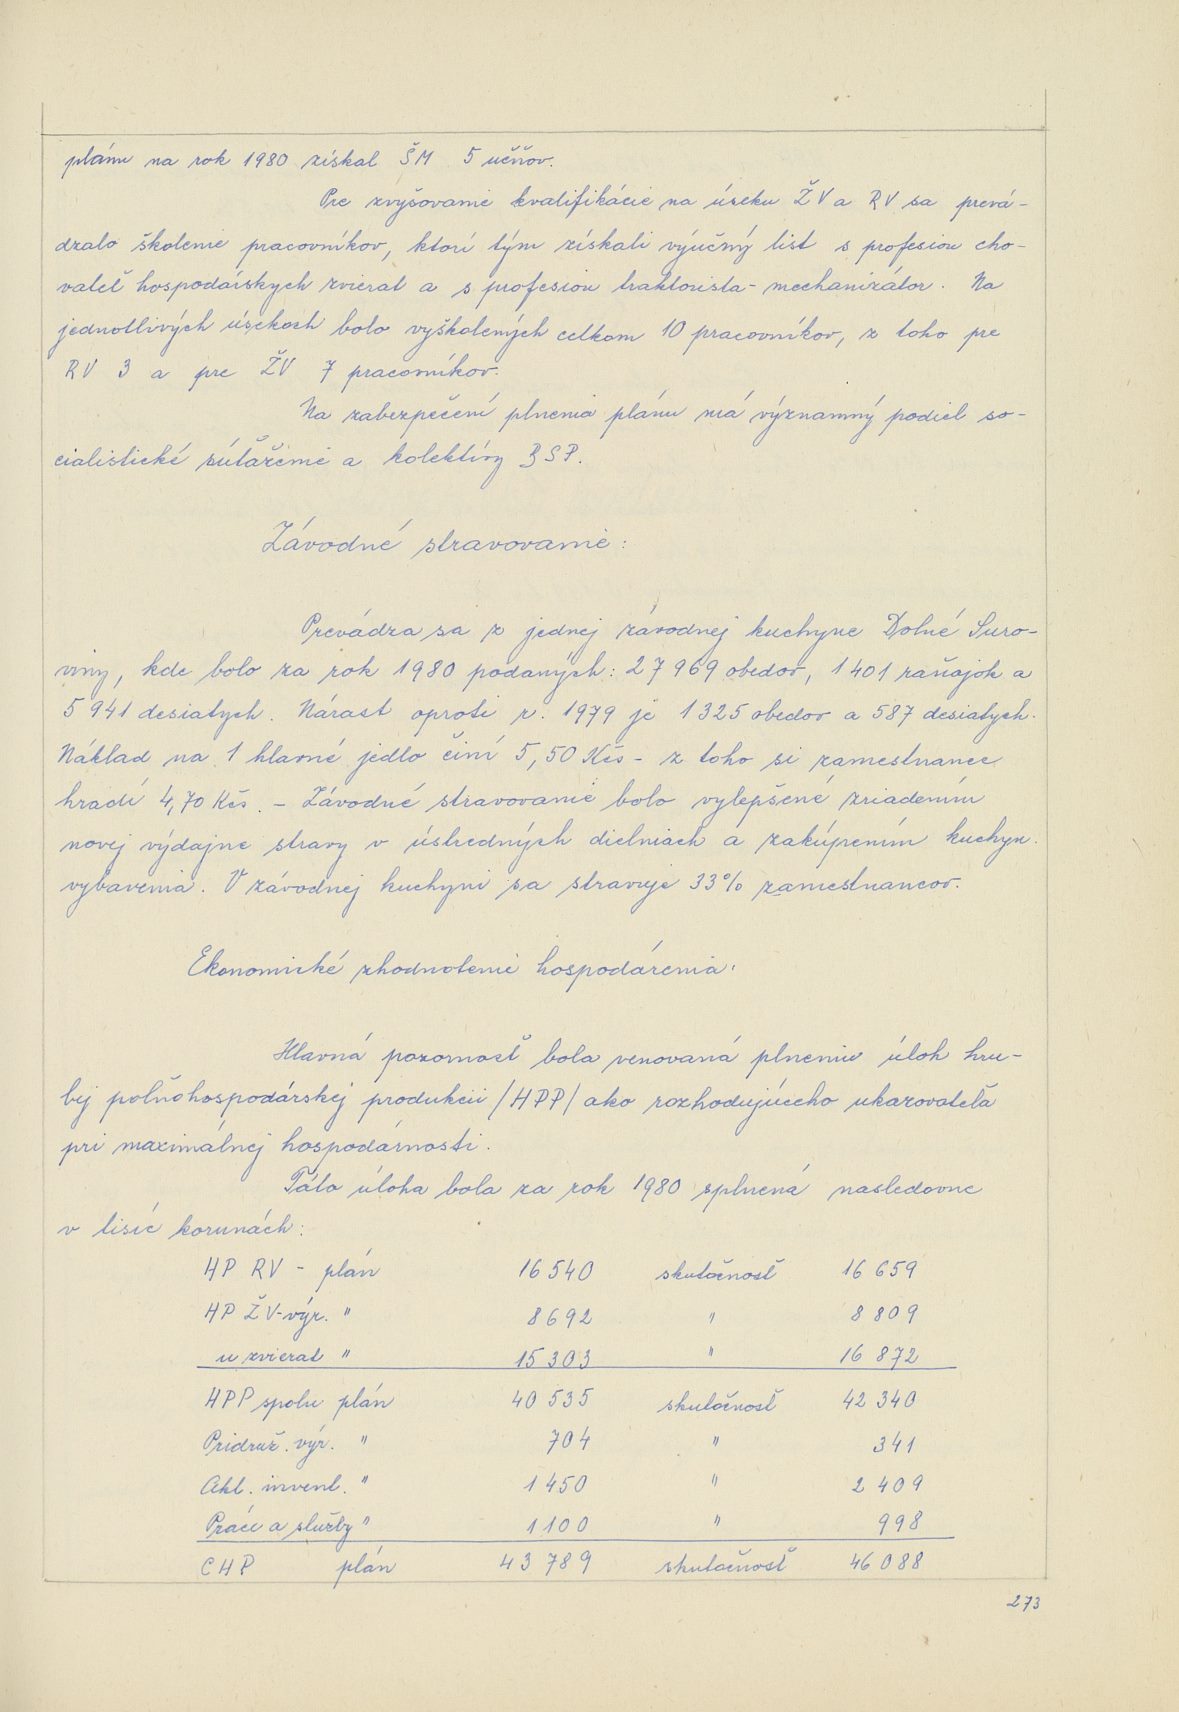 plánu na rok 1980 získal ŠM 5 učňov.
Pre zvyšovanie kvalifikácie na úseku ŽV a RV sa prevá-
dzalo školenie pracovníkov, ktorí tým získali výučný list s profesiou cho-
vateľ hospodárskych zvierat a s profesiou traktorista-mechanizátor. Na
jednotlivých úsekoch bolo vyškolených celkom 10 pracovníkov, z toho pre
RV 3 a pre ŽV 7 pracovníkov.
Na zabezpečení plnenia plánu má významný podiel so-
cialistické súťaženie a kolektívy BSP.
Závodné stravovanie:
Prevádza sa z jednej závodnej kuchyne Dolné Suro-
viny, kde bolo za rok 1980 podaných: 27 969 obedov, 1 401 raňajok a
5 941 desiatych. Nárast oproti r. 1979 je 1 325 obedov a 587 desiatych.
Náklad na 1 hlavné jedlo činí 5,50 Kčs - z toho si zamestnanec
hradí 4,70 Kčs. - Závodné stravovanie bolo vylepšené zriadením
novej výdajne stravy v ústredných dielniach a zakúpením kuchyn.
vybavenia. V závodnej kuchyni sa stravuje 33% zamestnancov.
Ekonomické zhodnotenie hospodárenia:
Hlavná pozornosť bola venovaná plneniu úloh hru-
bej poľnohospodárskej produkcii /HPP/ ako rozhodujúceho ukazovateľa
pri maximálnej hospodárnosti.
Táto úloha bola za rok 1980 splnená nasledovne
v tisíc korunách:
HP RV - plán 16 540 skutočnosť 16 659
HP ŽV-výr. " 8 692 " 8 809
u zvierat " 15 303 " 16 872
HPP spolu plán 40 535 skutočnosť 42 340
Pridruž. výr. " 704 " 341
Akt. invent. " 1 450 " 2 409
Práce a služby " 1 100 " 998
CHP plán 43 789 skutočnosť 46 088
273